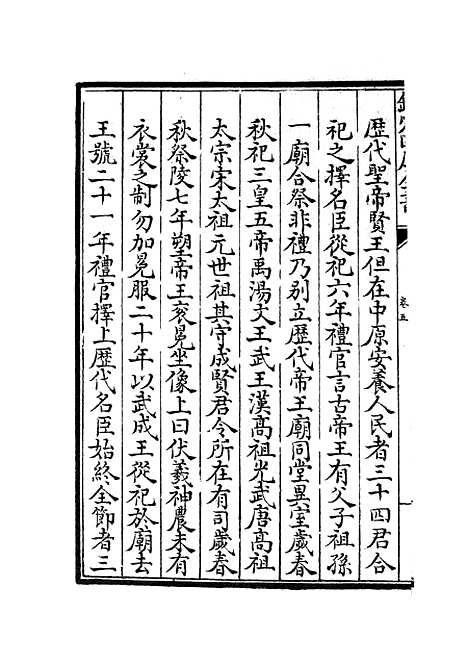 欽定四庫全書
卷五
歴代聖帝賢王但在中原安養人民者三十四君合
祀之擇名臣從祀六年禮官言古帝王有父子祖孫
一廟合祭非禮乃别立歴代帝王廟同堂異室歲春
秋祀三皇五帝禹湯文王武王漢髙祖光武唐髙祖
太宗宋太祖元世祖其守成賢君令所在有司歲春
秋祭陵七年塑帝王衮冕坐像上曰伏羲神農未有
衣裳之制勿加冕服二十年以武成王從祀於廟去
王號二十一年禮官擇上歴代名臣始終全節者三